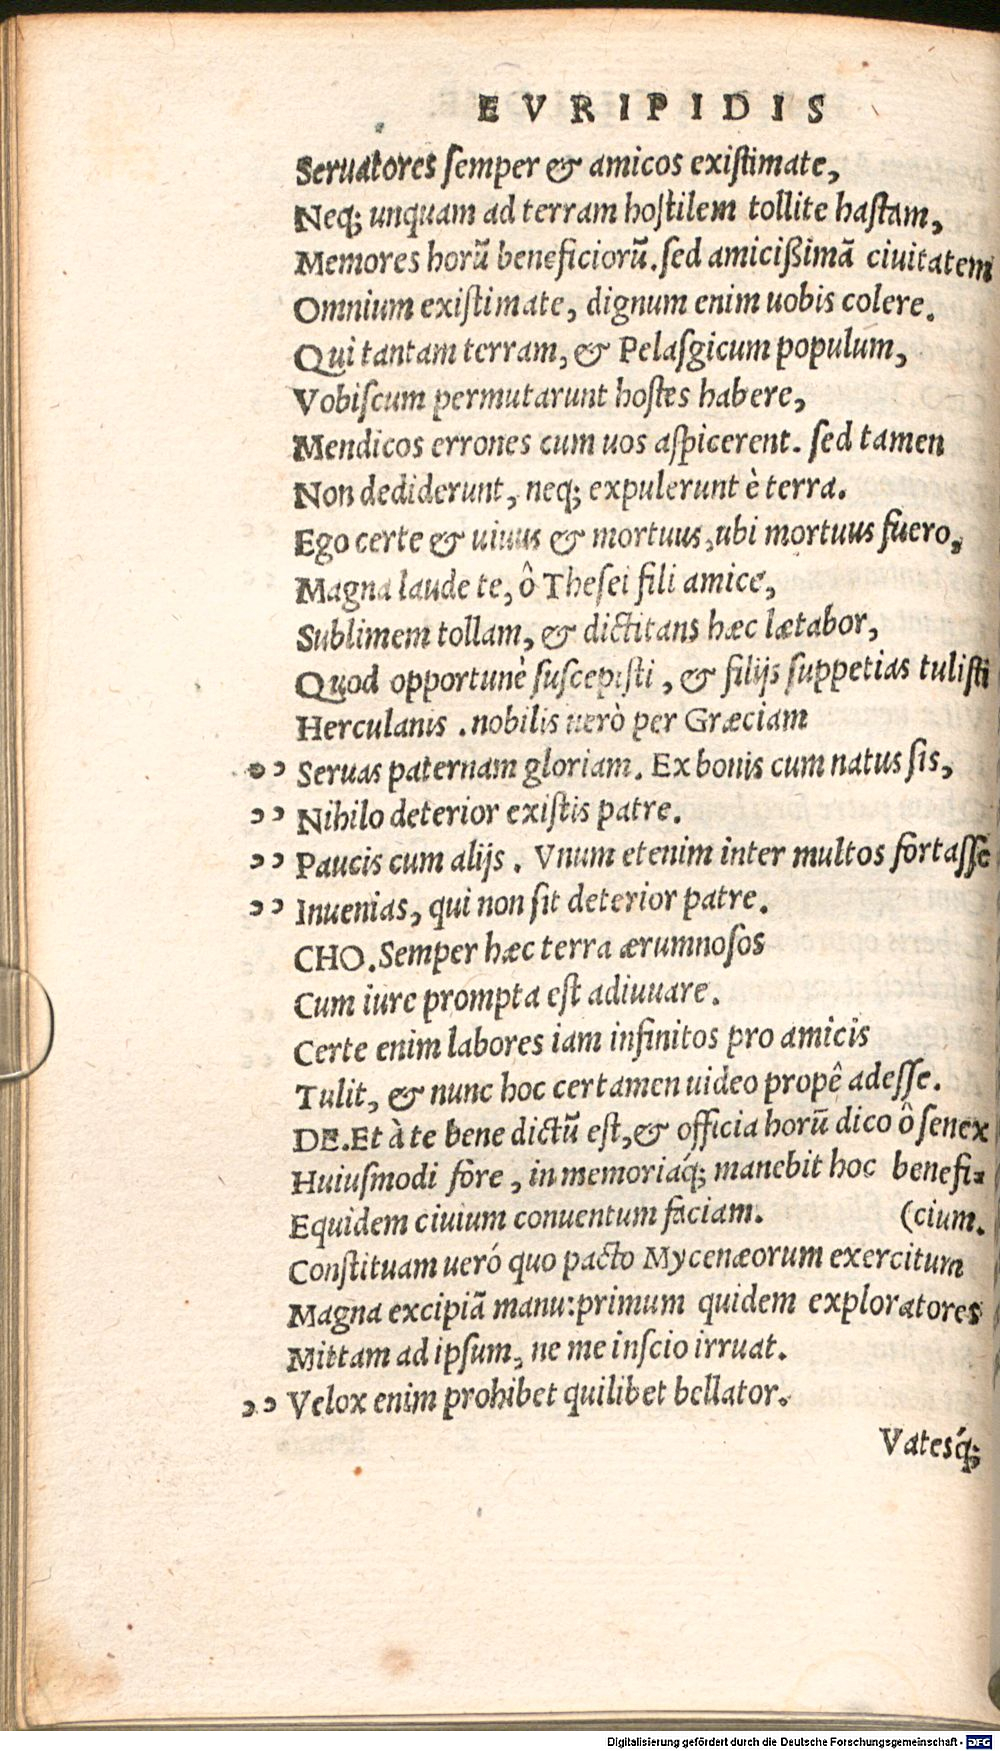 EVRIPIDIS
Seruatores ſemper & amicos exiſtimate,
Neq; unquam ad terram hoſtilem tollite haſtam,
Memores horũ beneficiorũ. ſed amicißimã ciuitatem
Omnium exiſtimate, dignum enim uobis colere.
Qui tantam terram, & Pelaſgicum populum,
Vobiſcum permutarunt hoſtes habere,
Mendicos errones cum uos aſpicerent. ſed tamen
Non dediderunt, neq; expulerunt è terra.
Ego certe & uiuus & mortuus, ubi mortuus fuero,
Magna laude te, ô Theſei fili amice,
Sublimem tollam, & dictitans hæc lætabor,
Quod opportunè ſuſcepiſti, & filijs ſuppetias tuliſti
Herculanis. nobilis uerò per Græciam
ↄↄ Seruas paternam gloriam. Ex bonis cum natus ſis,
ↄↄ Nihilo deterior exiſtis patre.
ↄↄ Paucis cum alijs. Vnum etenim inter multos fortaſſe
ↄↄ Inuenias, qui non ſit deterior patre.
CHO. Semper hæc terra ærumnoſos
Cum iure prompta eſt adiuuare.
Certe enim labores iam infinitos pro amicis
Tulit, & nunc hoc certamen uideo propê adeſſe.
DE. Et à te bene dictũ eſt, & officia horũ dico ô ſenex
Huiuſmodi fore, in memoriáq; manebit hoc benefi-
Equidem ciuium conuentum faciam. (cium.
Conſtituam ueró quo pacto Mycenæorum exercitum
Magna excipiã manu: primum quidem exploratores
Mittam ad ipſum, ne me inſcio irruat.
ↄↄ Velox enim prohibet quilibet bellator.
Vatesq́;
Digitalisierung gefördert durch die Deutsche Forschungsgemeinschaft - DFG